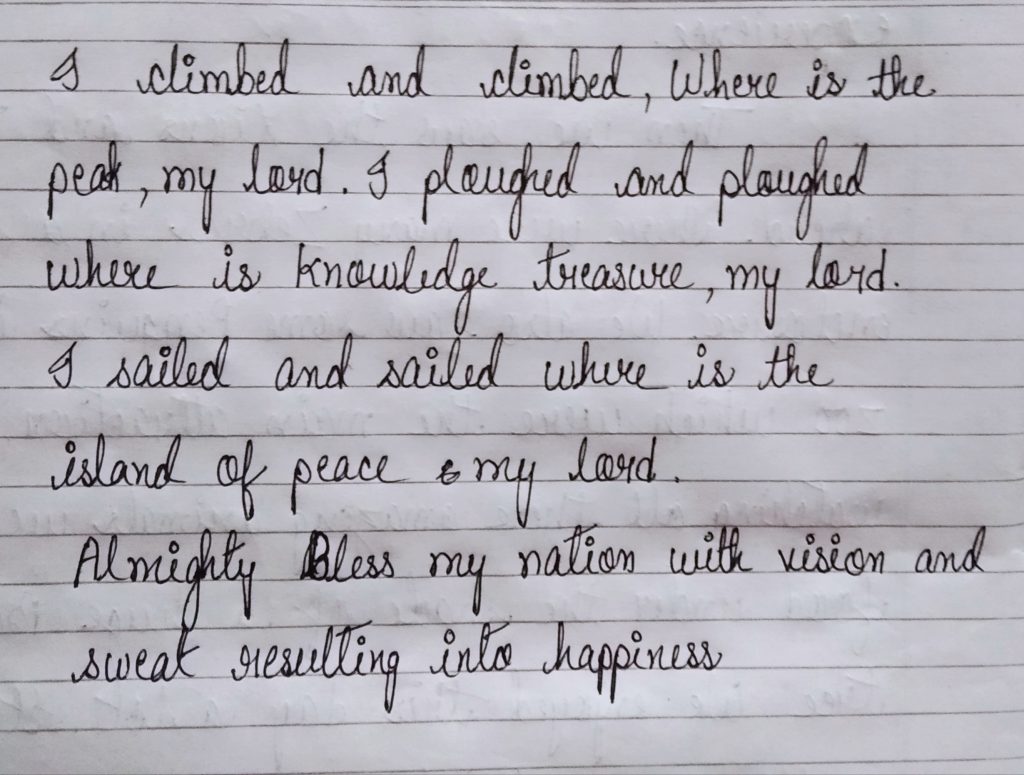 I climbed and climbed, Where is the
peak, my lord. I ploughed and ploughed
where is knowledge treasure, my lord.
I sailed and sailed where is the
island of peace my lord.
Almighty Bless my nation with vision and
sweat resulting into happiness